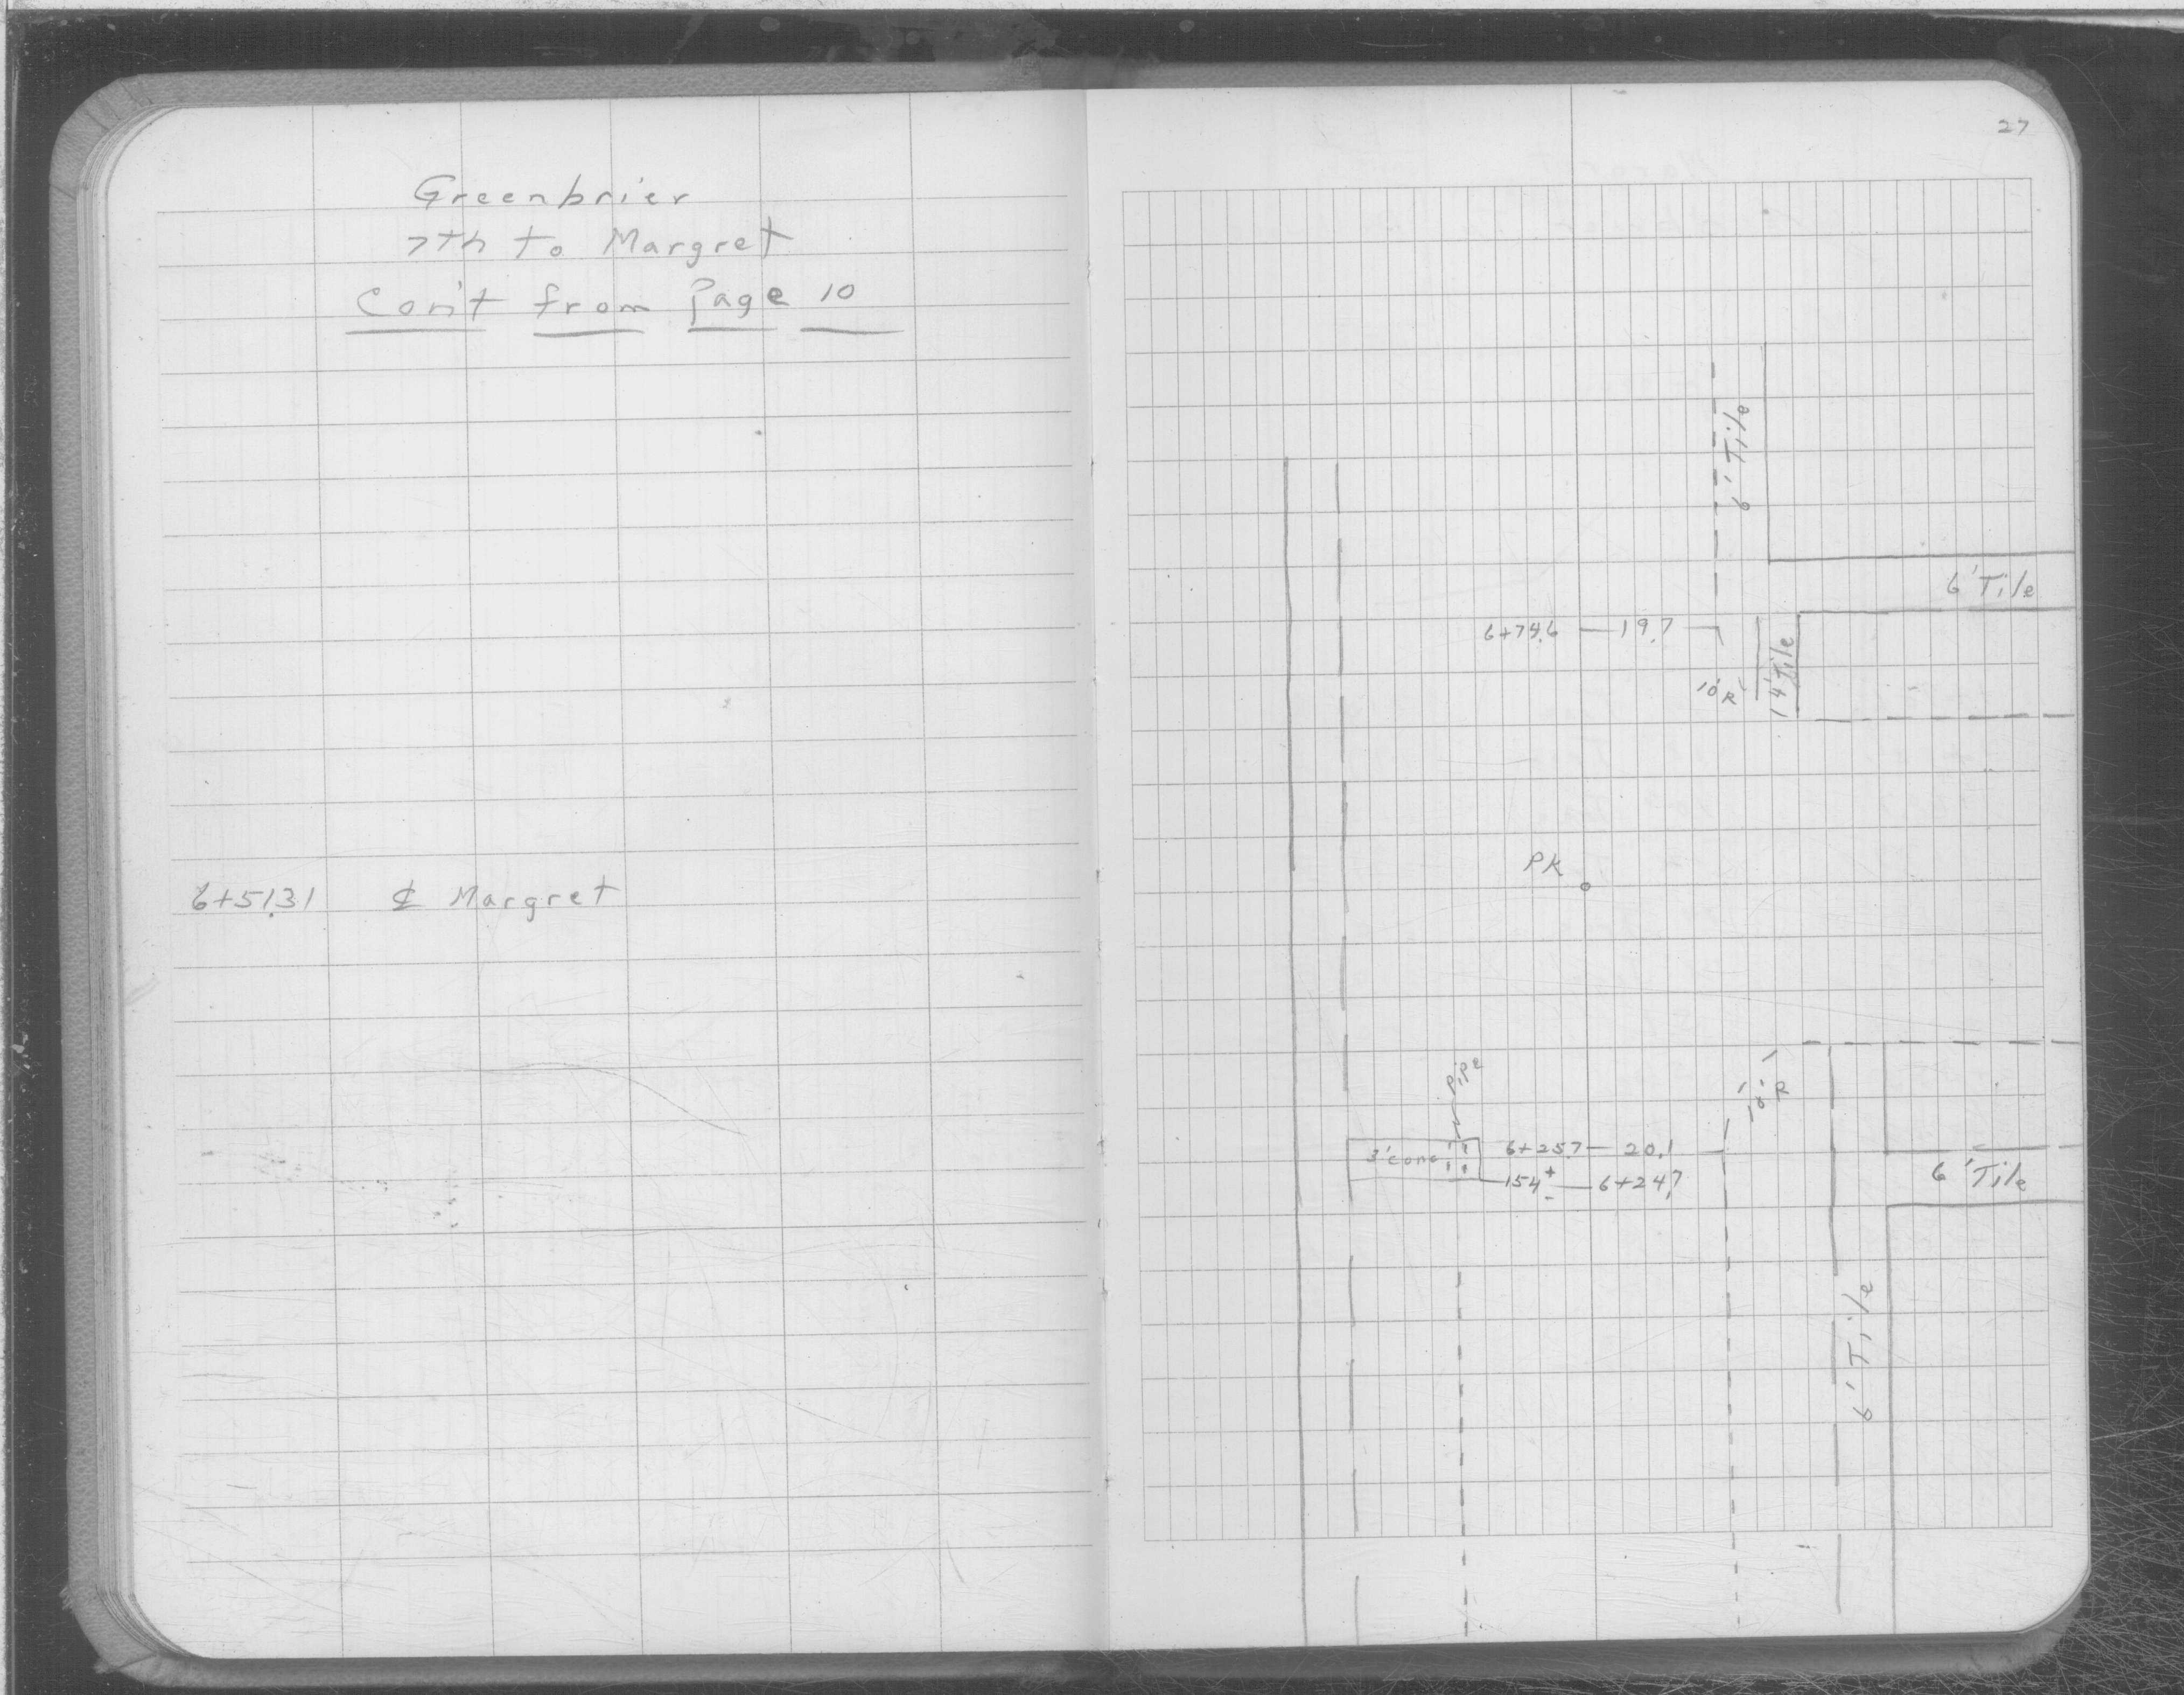 Greenbrier
7th to Margret
Con't from Page 10
6+51.31 ₵ Margret
27
6' Tile
6' Tile
6+74.6 — 19.7
10'R
1.4' Tile
PK
Pipe
10'R
3'conc
6+25.7 — 20.1
15.4 ± — 6+24.7
6' Tile
6' Tile